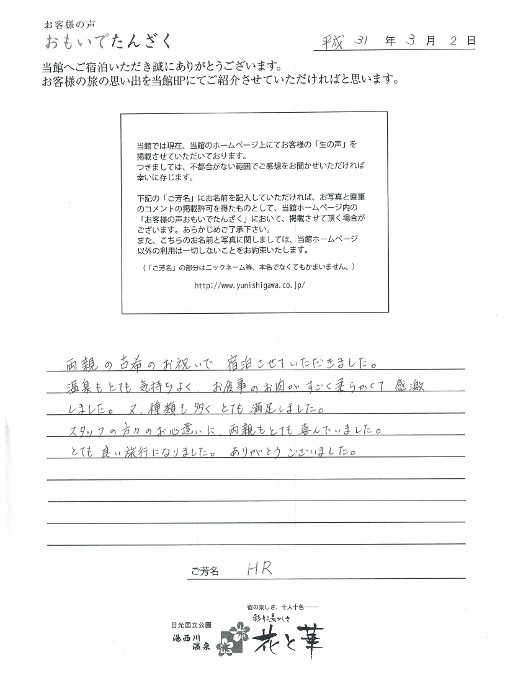 お客様の声
おもいでたんざく
平成 31 年 3 月 2 日
当館へご宿泊いただき誠にありがとうございます。
お客様の旅の思い出を当館HPにてご紹介させていただければと思います。
当館では現在、当館のホームページ上にてお客様の「生の声」を
掲載させていただいております。
つきましては、不都合がない範囲でご感想をお聞かせいただければ
幸いに存じます。
下記の「ご芳名」にお名前を記入していただければ、お写真と直筆
のコメントの掲載許可を得たものとして、当館ホームページ内の
「お客様の声おもいでたんざく」において、掲載させて頂く場合が
ございます。あらかじめご了承下さい。
また、こちらのお名前と写真に関しましては、当館ホームページ
以外の利用は一切しないことをお約束いたします。
(「ご芳名」の部分はニックネーム等、本名でなくてもかまいません。)
http://www.yunishigawa.co.jp/
両親の古希のお祝いで 宿泊させていただきました。
温泉もとても気持ちよく、お食事のお肉がすごく柔らかくて 感激
しました。又、種類も多く とても満足しました。
スタッフの方々のお心遣いに、両親もとても喜んでいました。
とても良い旅行になりました。ありがとうございました。
ご芳名 HR
宿の楽しさ、十人十色
日光国立公園
湯西川
温泉
彩り湯かしき
花と華